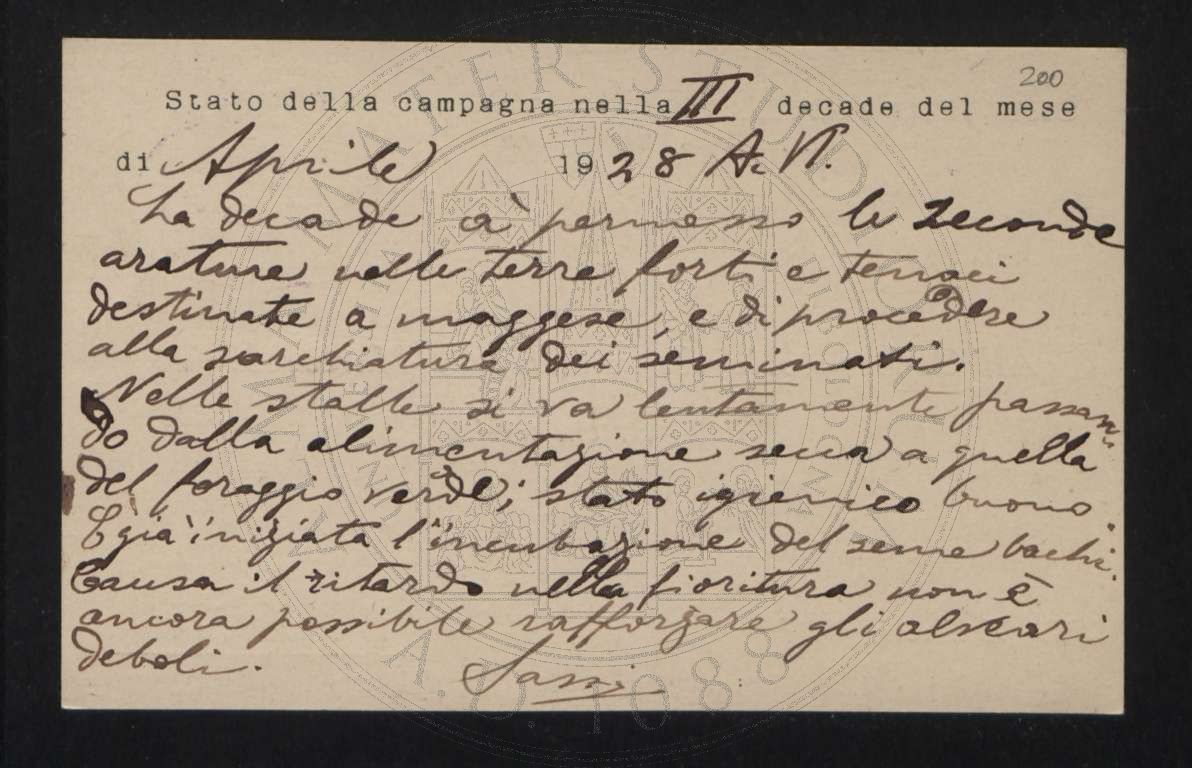 200
Stato della campagna nella III decade del mese
di Aprile 1928 A. VI.
La decade à permesso le seconde
arature nelle terre forti e tenaci
destinate a maggese, e di procedere
alla sarchiatura dei seminati.
Nelle stalle si va lentamente passan-
do dalla alimentazione secca a quella
del foraggio verde; stato igienico buono.
È già iniziata l'incubazione del seme bachi.
Causa il ritardo nella fioritura non è
ancora possibile rafforzare gli alveari
deboli.
Sassi
ALMA MATER STUDIORUM
A.D. 1088